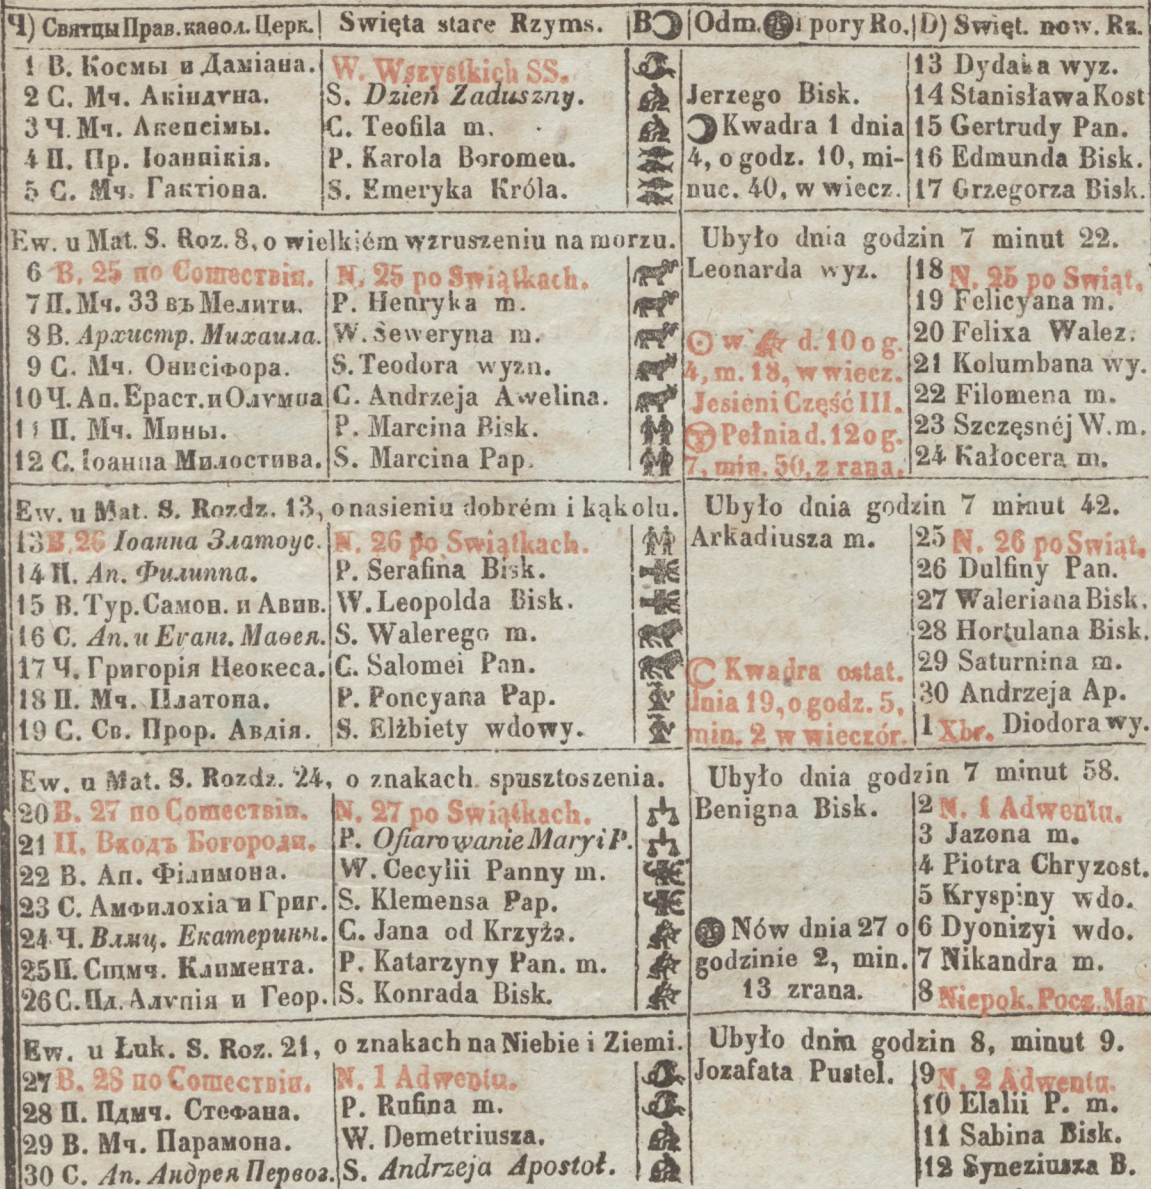 Ч) Святцы Прав. каѳол. Церк. | Swięta stare Rzyms. | B☽ | Odm. i pory Ro. | D) Swięt. now. Rz.
1 В. Космы и Даміана. | W. Wszystkich SS. | 13 Dydaka wyz.
2 С. Мч. Акіндѵна. | S. Dzień Zaduszny. | Jerzego Bisk. | 14 Stanisława Kost
3 Ч. Мч. Акепсімы. | C. Teofila m. | ☽ Kwadra 1 dnia | 15 Gertrudy Pan.
4 П. Пр. Іоанникія. | P. Karola Boromeu. | 4, o godz. 10, mi- | 16 Edmunda Bisk.
5 С. Мч. Гактіона. | S. Emeryka Króla. | nuc. 40, w wiecz. | 17 Grzegorza Bisk.
Ew. u Mat. S. Roz. 8, o wielkiém wzruszeniu na morzu. | Ubyło dnia godzin 7 minut 22.
6 В. 25 по Сошествіи. | N. 25 po Swiątkach. | Leonarda wyz. | 18 N. 25 po Swiąt.
7 П. Мч. 33 въ Мелити. | P. Henryka m. | 19 Felicyana m.
8 В. Архистр. Михаила. | W. Seweryna m. | ☉ w d. 10 o g. | 20 Felixa Walez.
9 С. Мч. Онисіфора. | S. Teodora wyzn. | 4, m. 18, w wiecz. | 21 Kolumbana wy.
10 Ч. Ап. Ераст. и Олѵмпа | C. Andrzeja Awelina. | Jesieni Część III. | 22 Filomena m.
11 П. Мч. Мины. | P. Marcina Bisk. | Pełnia d. 12 o g. | 23 Szczęsnéj W. m.
12 С. Іоанна Милостива. | S. Marcina Pap. | 7, min. 50, z rana. | 24 Kałocera m.
Ew. u Mat. S. Rozdz. 13, o nasieniu dobrém i kąkolu. | Ubyło dnia godzin 7 minut 42.
13 В. 26 Іоанна Златоус. | N. 26 po Swiątkach. | Arkadiusza m. | 25 N. 26 po Swiąt.
14 П. Ап. Филиппа. | P. Serafina Bisk. | 26 Dulfiny Pan.
15 В. Гур. Самон. и Авив. | W. Leopolda Bisk. | 27 Waleriana Bisk.
16 С. Ап. и Еѵанг. Маѳея. | S. Walerego m. | 28 Hortulana Bisk.
17 Ч. Григорія Неокеса. | C. Salomei Pan. | ☾ Kwadra ostat. | 29 Saturnina m.
18 П. Мч. Платона. | P. Poncyana Pap. | dnia 19, o godz. 5, | 30 Andrzeja Ap.
19 С. Св. Прор. Авдія. | S. Elżbiety wdowy. | min. 2 w wieczór. | 1 Xbr. Diodora wy.
Ew. u Mat. S. Rozdz. 24, o znakach spusztoszenia. | Ubyło dnia godzin 7 minut 58.
20 В. 27 по Сошествіи. | N. 27 po Swiątkach. | Benigna Bisk. | 2 N. 1 Adwentu.
21 П. Входъ Богороди. | P. Ofiarowanie Maryi P. | 3 Jazona m.
22 В. Ап. Філимона. | W. Cecylii Panny m. | 4 Piotra Chryzost.
23 С. Амфилохіа и Григ. | S. Klemensa Pap. | 5 Kryspiny wdo.
24 Ч. Влмц. Екатерины. | C. Jana od Krzyża. | Nów dnia 27 o | 6 Dyonizyi wdo.
25 П. Сщмч. Климента. | P. Katarzyny Pan. m. | godzinie 2, min. | 7 Nikandra m.
26 С. Пд. Алѵпія и Геор. | S. Konrada Bisk. | 13 zrana. | 8 Niepok. Pocz. Mar
Ew. u Łuk. S. Roz. 21, o znakach na Niebie i Ziemi. | Ubyło dnia godzin 8, minut 9.
27 В. 28 по Сошествіи. | N. 1 Adwentu. | Jozafata Pustel. | 9 N. 2 Adwentu.
28 П. Пдмч. Стефана. | P. Rufina m. | 10 Elalii P. m.
29 В. Мч. Парамона. | W. Demetriusza. | 11 Sabina Bisk.
30 С. Ап. Андрея Первоз. | S. Andrzeja Apostoł. | 12 Syneziusza B.